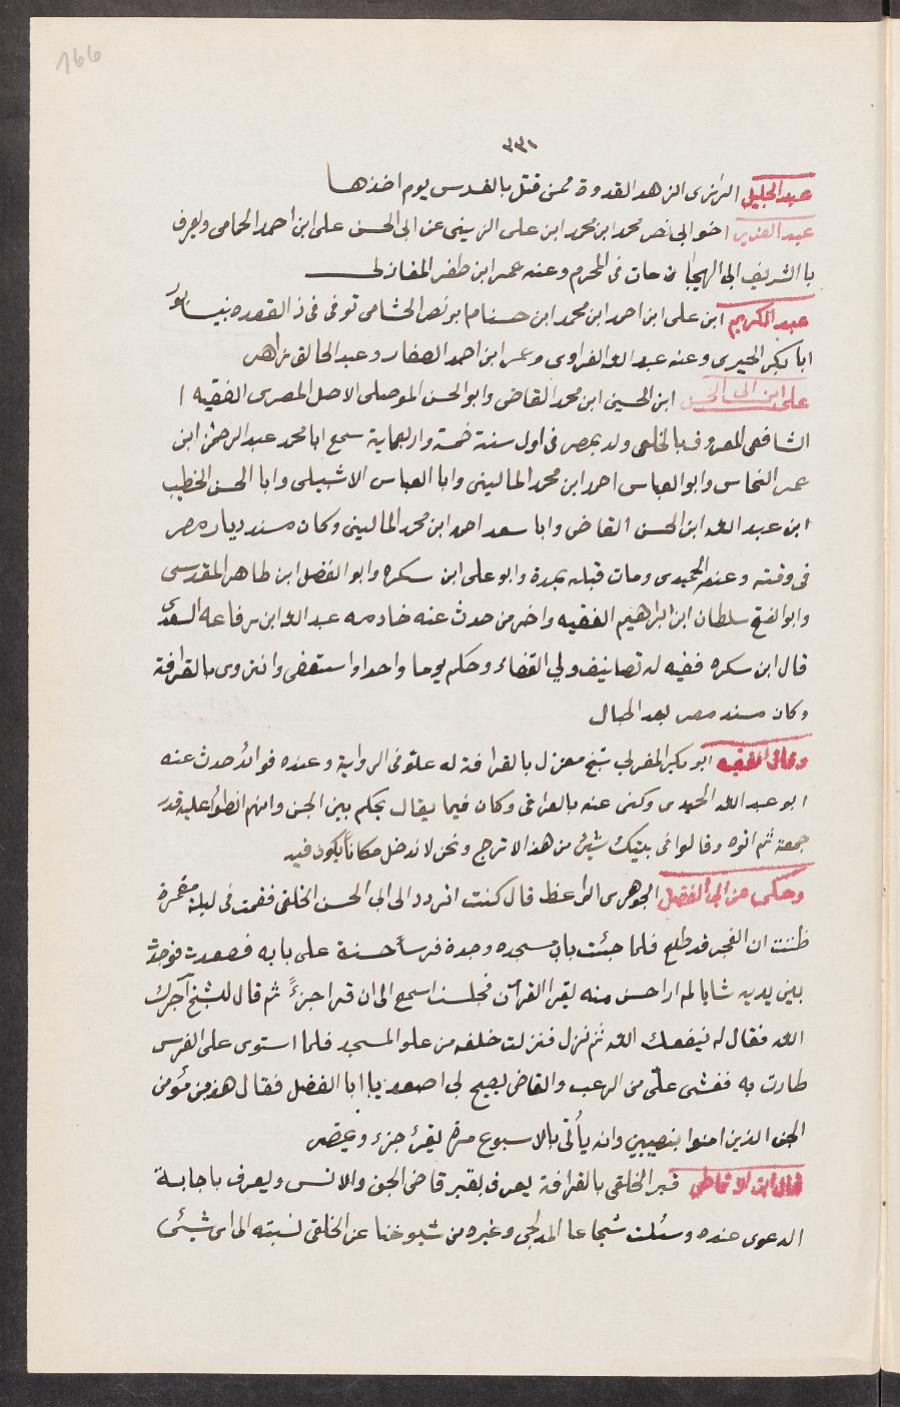 166
٣٣١
عبد الجليل الرازى الزهد القدوة ممن قتل بالقدس يوم اخذها
عبد العزيز اخو ابى نصر محمد ابن محمد ابن على الزينبى عن ابى الحسن على ابن احمد الحمامى ويعرف
با الشريف ابى الهيجا مات فى المحرم وعنه عمر ابن ظفر المغازلى
عبد الكريم ابن على ابن احمد ابن محمد ابن حسنام ابو نصر الخشامى توفى فى ذ القعده بنيسابور
ابا بكر الحيرى وعنه عبد الله الفراوى وعمر ابن احمد الصفار وعبد الخالق
على ابن ابى الحسن ابن الحسين ابن محمد القاضى وابو الحسن الموصلى الاصل المصرى الفقيه
الشافعى المعروف بالخلعى ولد بمصر فى اول سنة خمسة واربعماية سمع ابا محمد عبد الرحمن ابن
عمر النحاس وابو العباس احمد ابن محمد المالينى وابا العباس الاشبيلى وابا الحسن الخطيب
ابن عبد الله ابن الحسن القاضى وابا سعد احمد ابن محمد المالينى وكان مسند ديار مصر
فى وقته وعنه الحميدى ومات قبله بمدة وابو على ابن سكره وابو الفضل ابن طاهر المقدسى
وابو الفتح سلطان ابن ابراهيم الفقيه واخر من حدث عنه خادمه عبد الله ابن رفاعه السعدى
قال ابن سكره فقيه له تصانيف ولي القضاء وحكم يوما واحدا واستعفى وانزوى بالقرافة
وكان مسند مصر بعد الحبال
وقال الفقيه ابو بكر المغربي شيخ معزل بالقرافة له علو فى الرواية وعنده فوائد حدث عنه
ابو عبد الله الحميدى وكنى عنه بالقرافى وكان فيما يقال يحكم بين الجن وانهم ابطوا عليه قدر
جمعة ثم اتوه وقالوا فى بيتك شيئ من هذ الاترج ونحن لا ندخل مكاناً يكون فيه
وحكى عن ابى الفضل الجوهرى الواعظ قال كنت اتردد الى ابى الحسن الخلقى فقمت فى ليلة مقمرة
ظننت ان الفجر قد طلع فلما جئت باب مسجده وجدة فرساً حسنة على بابه فصعدت فوجدت
بين يديه شابا لم ار احسن منه يقرا القرآن فجلست اسمع الى ان قرا جزءً ثم قال للشيخ آجرك
الله فقال له نفعك الله ثم نزل فنزلت خلفه من علو المسجد فلما استوى على الفرس
طارت به فغشى علىّ من الرعب والقاضى يصيح لى اصعد يا ابا الفضل فقال هذ من مؤمن
الجن الذين امنوا بنصيبين وانه يأتى بالاسبوع مرة يقرئ جزء ويمضى
قال ابن الانماطى قبر الخلقى بالقرافة يعرف بقبر قاضى الجن والانس ويعرف باجابة
الدعوى عنده وسئلت شجاعا المدلجى وغيره من شيوخنا عن الخلقى نسبته الى اى شيئ